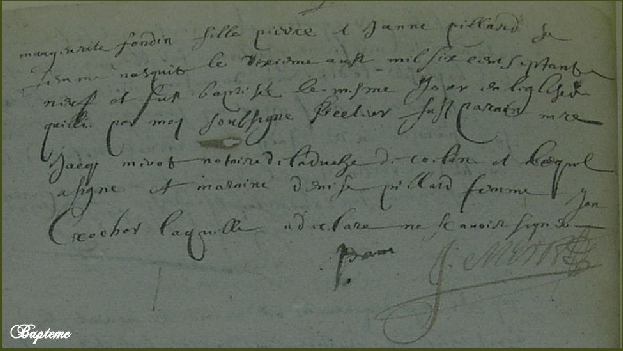 marguerite fondin fille pierre et Janne pillard sa
femme nasquit le dixieme aust mil six cent septant
neuf et fut baptisée le mesme Jour en leglise
par moy soubsigne fust parain mre
Jacq mivot notaire lequel
a signe et maraine denise pillard femme Jan
Crochor laquelle a declare ne scavoir signer
J. Mivot
Bapteme